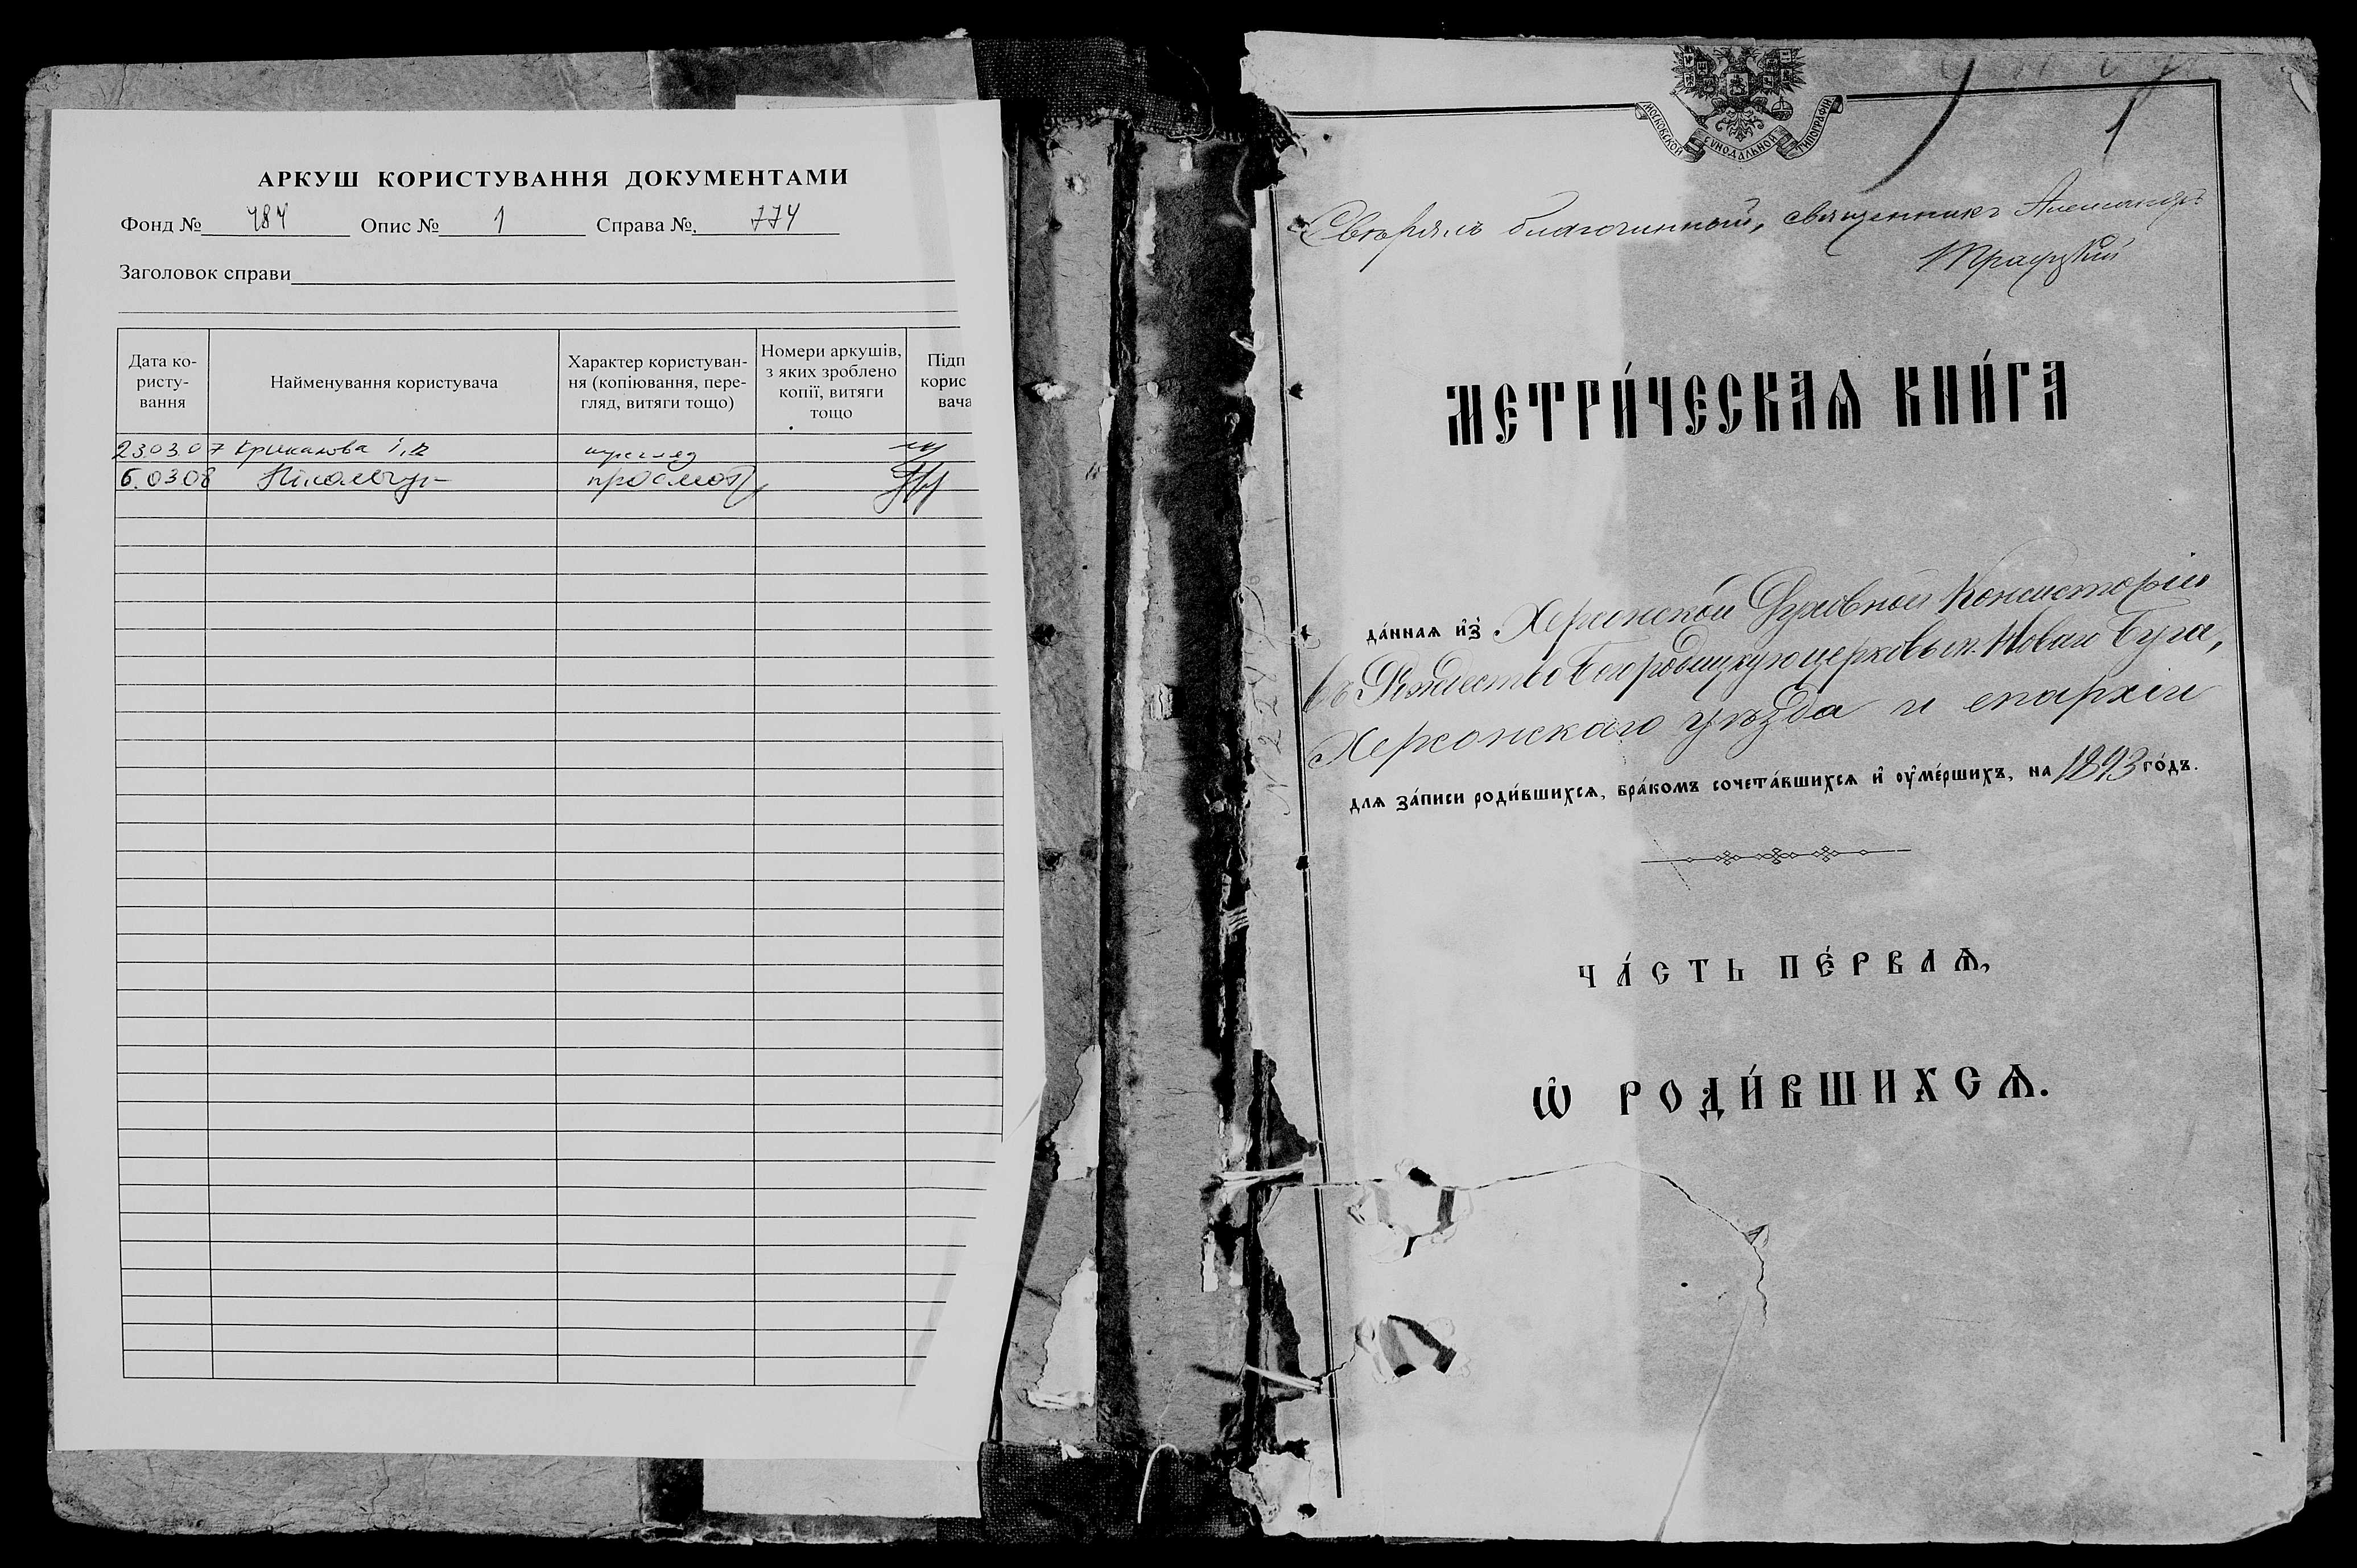 АРКУШ КОРИСТУВАННЯ ДОКУМЕНТАМИ
Фонд № 484 Опис № 1 Справа № 774
Заголовок справи
Дата ко-
ристу-
вання
Найменування користувача
Характер користуван-
ня (копіювання, пере-
гляд, витяги тощо)
Номери аркушів,
з яких зроблено
копії, витяги
тощо
Підп
корис
вача
23.03.07 перегляд
6.03.08 просмотр
МОСКОВСКОЙ СУНОДАЛЬНОЙ ТИПОГРАФІИ
1
Свѣрялъ благочинный, священникъ Александръ
МЕТРИ́ЧЕСКАѦ КНИ́ГА
да́ннаѧ и҆́з̾ Херсонской Духовной Консисторіи
въ Рождество Богородицкую церковь м. Новаго Буга,
Херсонскаго уѣзда и епархіи
длѧ за́писи роди́вшихсѧ, бра́комъ сочета́вшихсѧ и҆ оу҆ме́ршихъ, на 1893 го́дъ.
ЧА́СТЬ ПЕ́РВАѦ,
Ѡ҆ РОДИ́ВШИХСѦ.